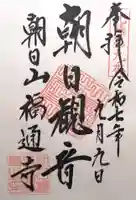 奉拝
令和七年
九月九日
朝日観音
朝日山福通寺